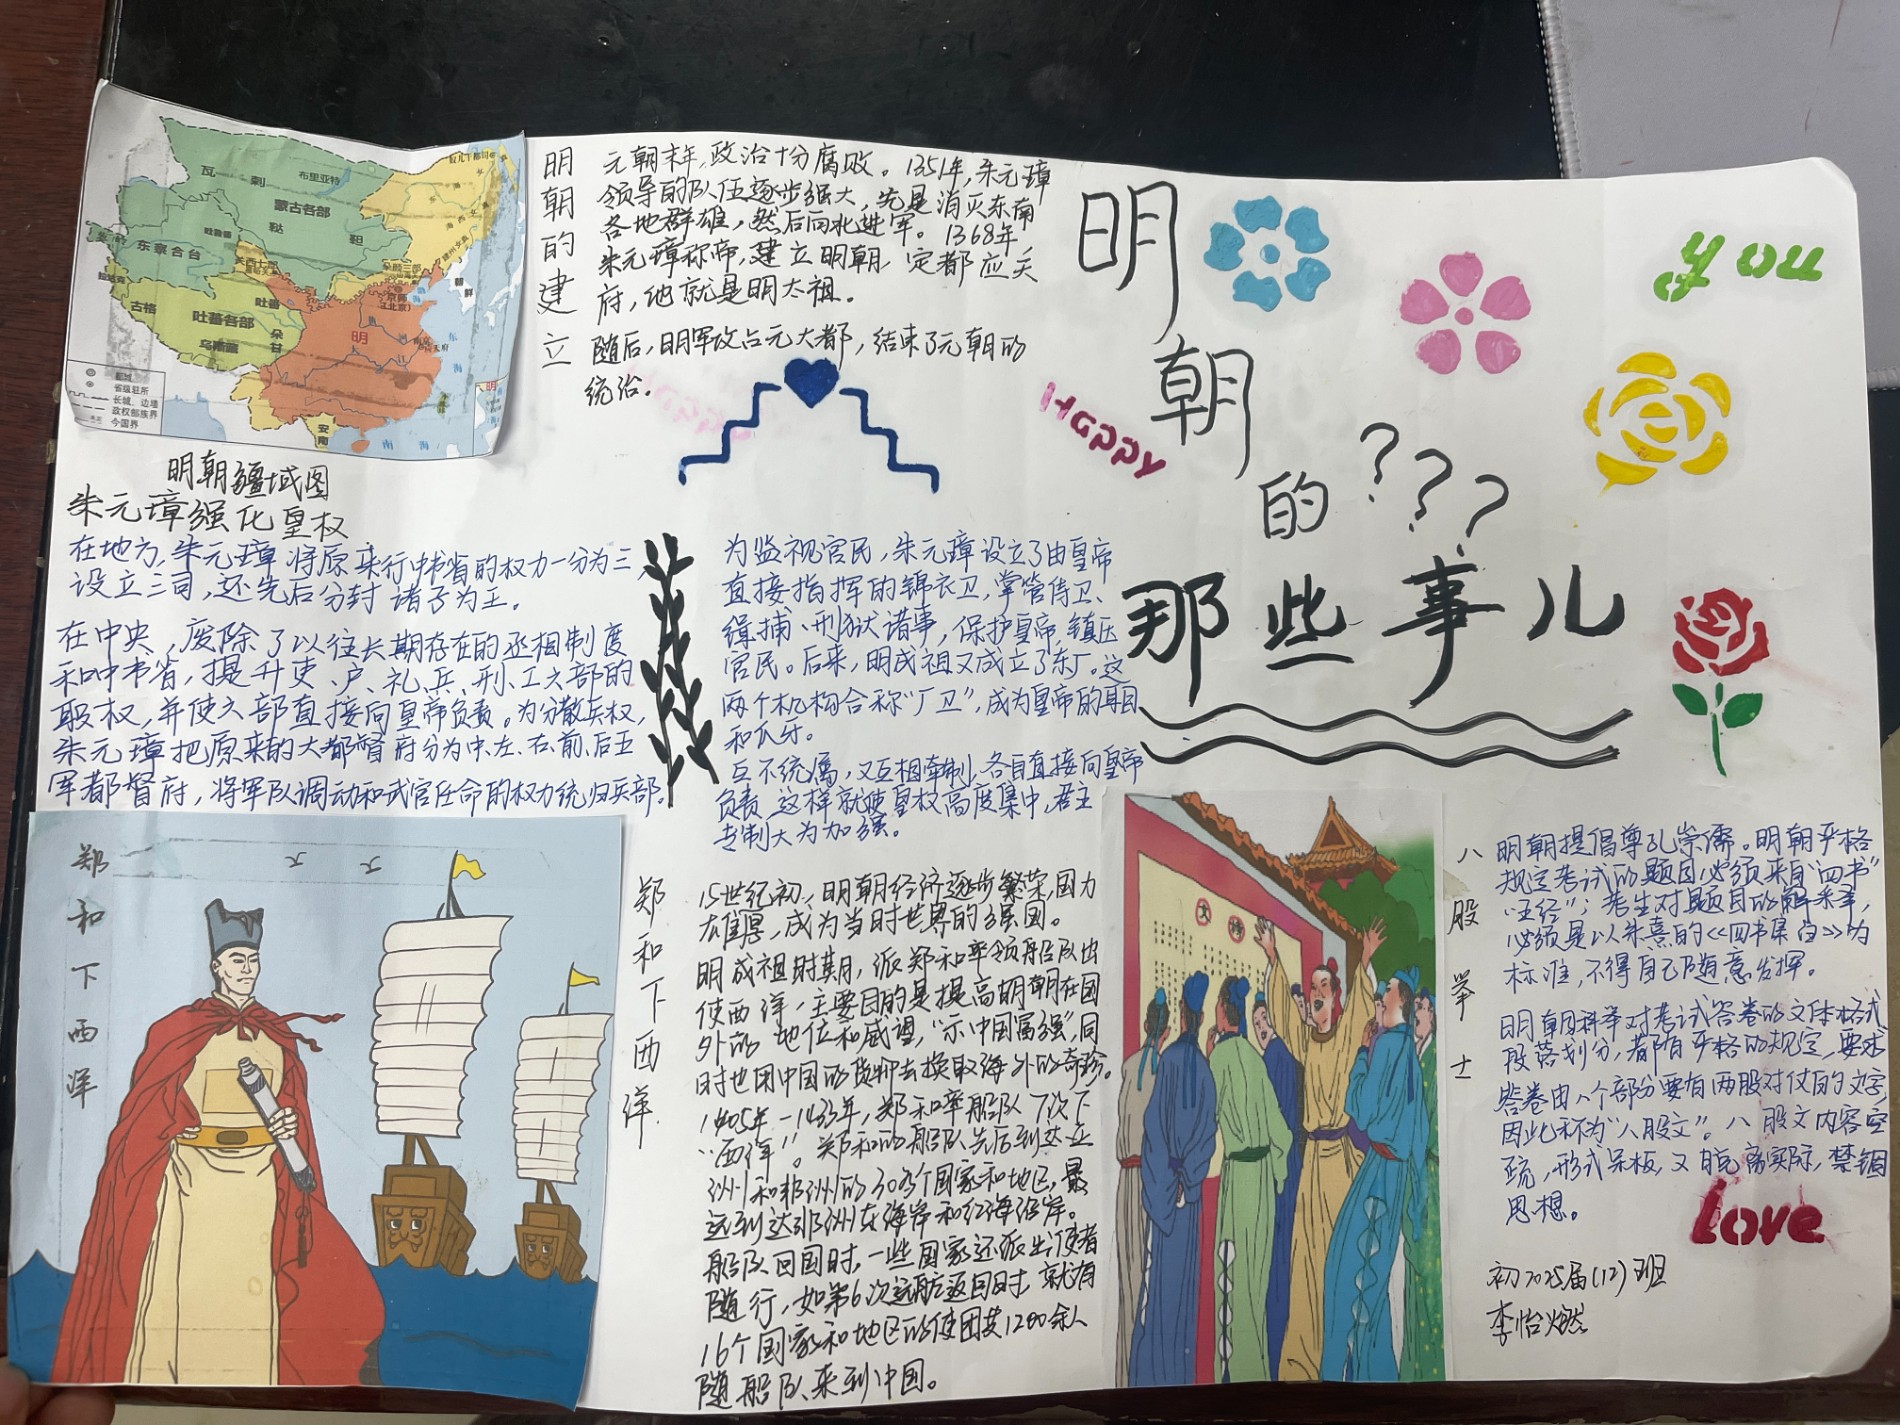 明朝的???
那些事儿
you
Happy
明朝的建立
元朝末年,政治十分腐败。1351年,朱元璋
领导的队伍逐步强大,先是消灭东南
各地群雄,然后向北进军。1368年,
朱元璋称帝,建立明朝,定都应天
府,他就是明太祖。
随后,明军攻占元大都,结束了元朝的
统治。
瓦剌
布里亚特
蒙古各部
鞑靼
东察合台
古格
吐蕃
吐蕃各部
乌斯藏
朵甘
明
朝鲜
安南
东海
南海
省级驻所
长城、边墙
政权部族界
今国界
明朝疆域图
朱元璋强化皇权
在地方,朱元璋将原来行中书省的权力一分为三,
设立三司,还先后分封诸子为王。
在中央,废除了以往长期存在的丞相制度
和中书省,提升吏、户、礼、兵、刑、工六部的
职权,并使六部直接向皇帝负责。为分散兵权,
朱元璋把原来的大都督府分为中、左、右、前、后五
军都督府,将军队调动和武官任命的权力统归兵部。
为监视官民,朱元璋设立了由皇帝
直接指挥的锦衣卫,掌管侍卫、
缉捕、刑狱诸事,保护皇帝,镇压
官民。后来,明成祖又成立了东厂。这
两个机构合称“厂卫”,成为皇帝的耳目
和爪牙。
互不统属,又互相牵制,各自直接向皇帝
负责,这样就使皇权高度集中,君主
专制大为加强。
郑和下西洋
郑和下西洋
15世纪初,明朝经济逐步繁荣,国力
雄厚,成为当时世界的强国。
明成祖时期,派郑和率领船队出
使西洋,主要目的是提高明朝在国
外的 地位和威望,“示中国富强”,同
时也用中国的货物去换取海外的奇珍。
1405年-1433年,郑和率船队7次下
“西洋”。郑和的船队先后到达亚
洲和非洲的30多个国家和地区,最
远到达非洲东海岸和红海沿岸。
船队回国时,一些国家还派出使者
随行,如第6次远航返回时,就有
16个国家和地区的使团共1200余人
随船队来到中国。
八股举士
明朝提倡尊孔崇儒。明朝严格
规定考试的题目必须来自“四书”
“五经”;考生对题目的解释,
必须是以朱熹的《四书集注》为
标准,不得自己随意发挥。
明朝科举对考试答卷的文体格式
段落划分,都有严格的规定,要求
答卷由八个部分要有两股对仗的文字,
因此称为“八股文”。八股文内容空
疏,形式呆板,又脱离实际,禁锢
思想。
love
初2025届(12)班
李怡燃